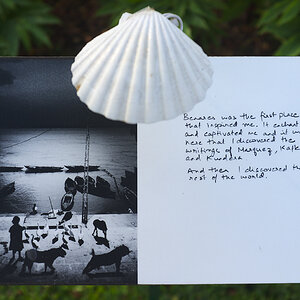 Benares was the first place
that inspired me. It enchant
and captivated me and it was
here that I discovered the
writings of Marquez, Kafk
and Kundera
And then I discovered the
rest of the world.